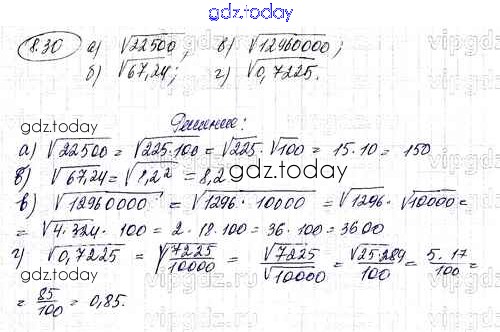 gdz.today
8.30 а) √22500; в) √12960000;
б) √67,24; г) √0,7225.
gdz.today
gdz.today
Решение:
а) √22500 = √225·100 = √225·√100 = 15·10 = 150
gdz.today
б) √67,24 = √8,2² = 8,2
в) √12960000 = √1296·10000 = √1296·√10000 =
= √4·324·100 = 2·18·100 = 36·100 = 3600
г) √0,7225 = √7225/10000 = √7225/√10000 = √25·289/100 = 5·17/100 =
= 85/100 = 0,85.
gdz.today
gdz.today